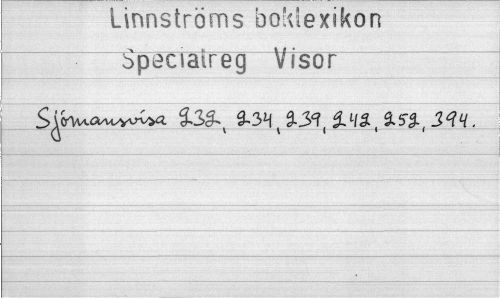 Linnströms boklexikon
Specialreg Visor
Sjömansvisa 232, 234, 239, 242, 252, 394.